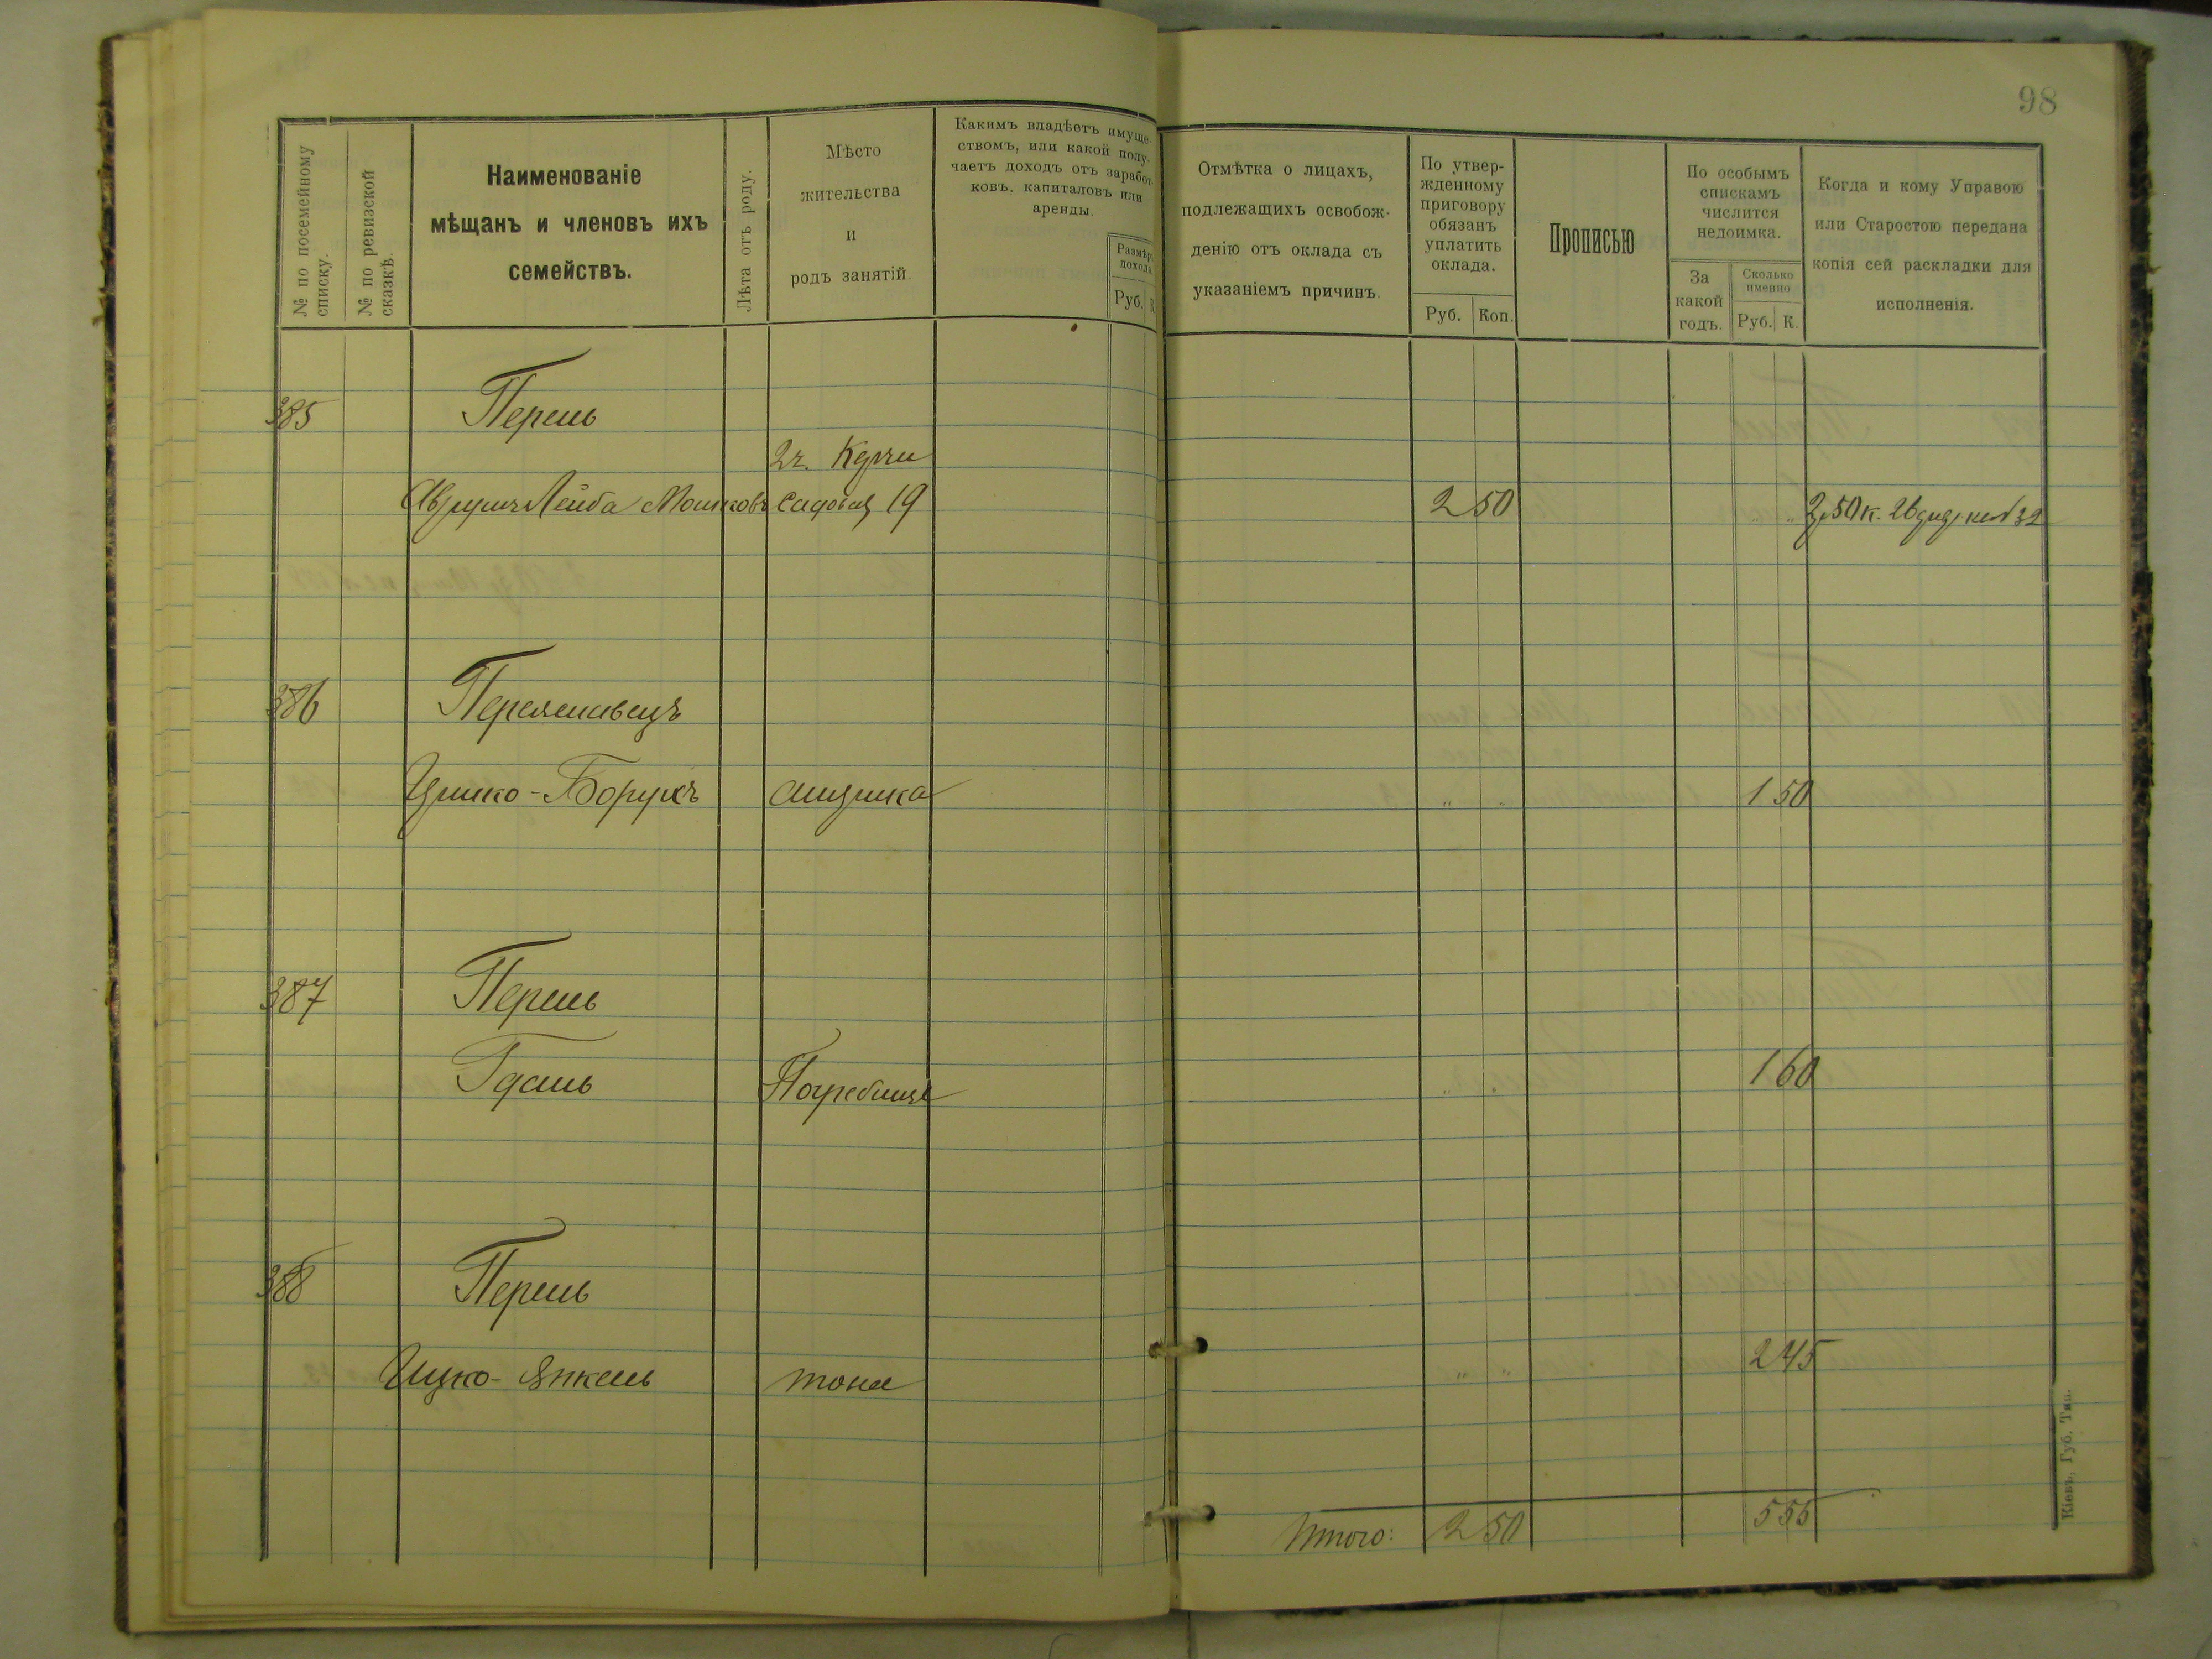 98
№ по посемейному
списку.
№ по ревизской
сказкѣ.
Наименованіе
мѣщанъ и членовъ ихъ
семействъ.
Лѣта отъ роду.
Мѣсто
жительства
и
родъ занятій.
Какимъ владѣетъ имуще-
ствомъ, или какой полу-
чаетъ доходъ отъ заработ-
ковъ, капиталовъ или
аренды.
Размѣръ
дохода
Руб. К
Отмѣтка о лицахъ,
подлежащихъ освобож-
денію отъ оклада съ
указаніемъ причинъ.
По утвер-
жденному
приговору
обязанъ
уплатить
оклада.
Руб. Коп.
Прописью
По особымъ
спискамъ
числится
недоимка.
За
какой
годъ.
Сколько
именно
Руб. К.
Когда и кому Управою
или Старостою передана
копія сей раскладки для
исполненія.
385 Перель
Лейба Мошковъ Садовая 19 2 50
386
Борухъ 1 50
387 Перель
Погребище 1 60
388 Перель
Ицко-Янкель 2 45
Итого: 2 50 5 55
Кіевъ, Губ. Тип.